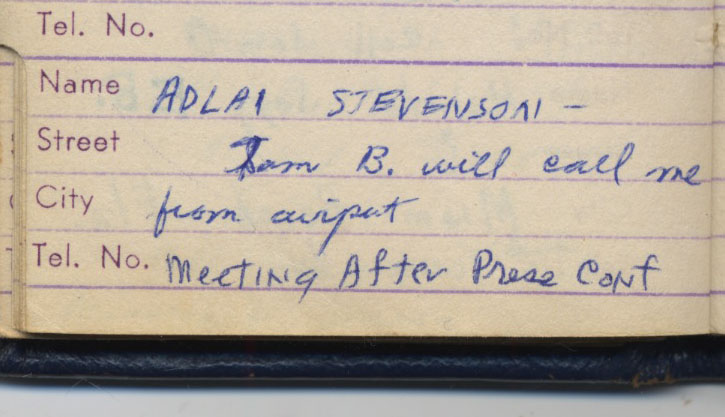 Tel. No.
Name ADLAI STEVENSON -
Street Sam B. will call me
City from airport
Tel. No. Meeting After Press Conf